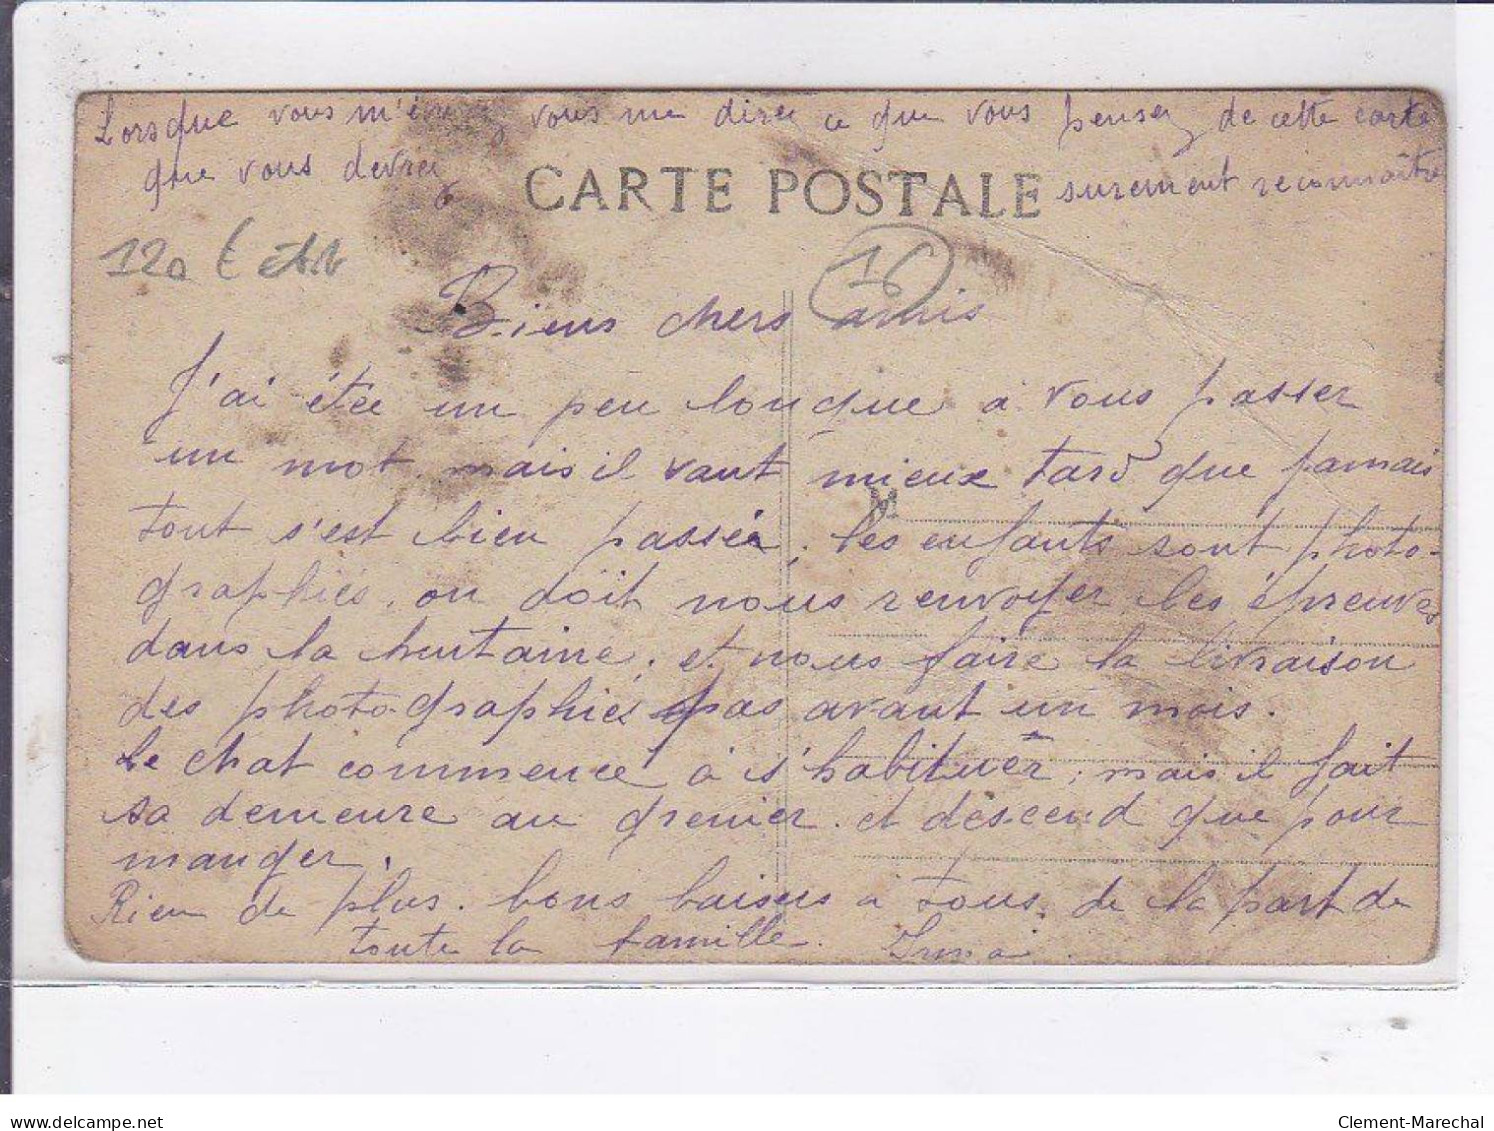 Lorsque vous vous me direz ce que vous pensez de cette carte
que vous devrez surement reconnaître
CARTE POSTALE
120 € 
16
Biens chers amis
J'ai étée un peu longue à vous passer
un mot, mais il vaut mieux tard que jamais
M
tout s'est bien passée, les enfants sont photo-
graphiés, on doit nous renvoyer les épreuves
dans la huitaine, et nous faire la livraison
des photographies pas avant un mois.
Le chat commence à s'habituer, mais il fait
sa demeure au grenier et descend que pour
manger.
Rien de plus. bons baisers à tous, de la part de
toute la famille.
delcampe.net
Clement-Marechal